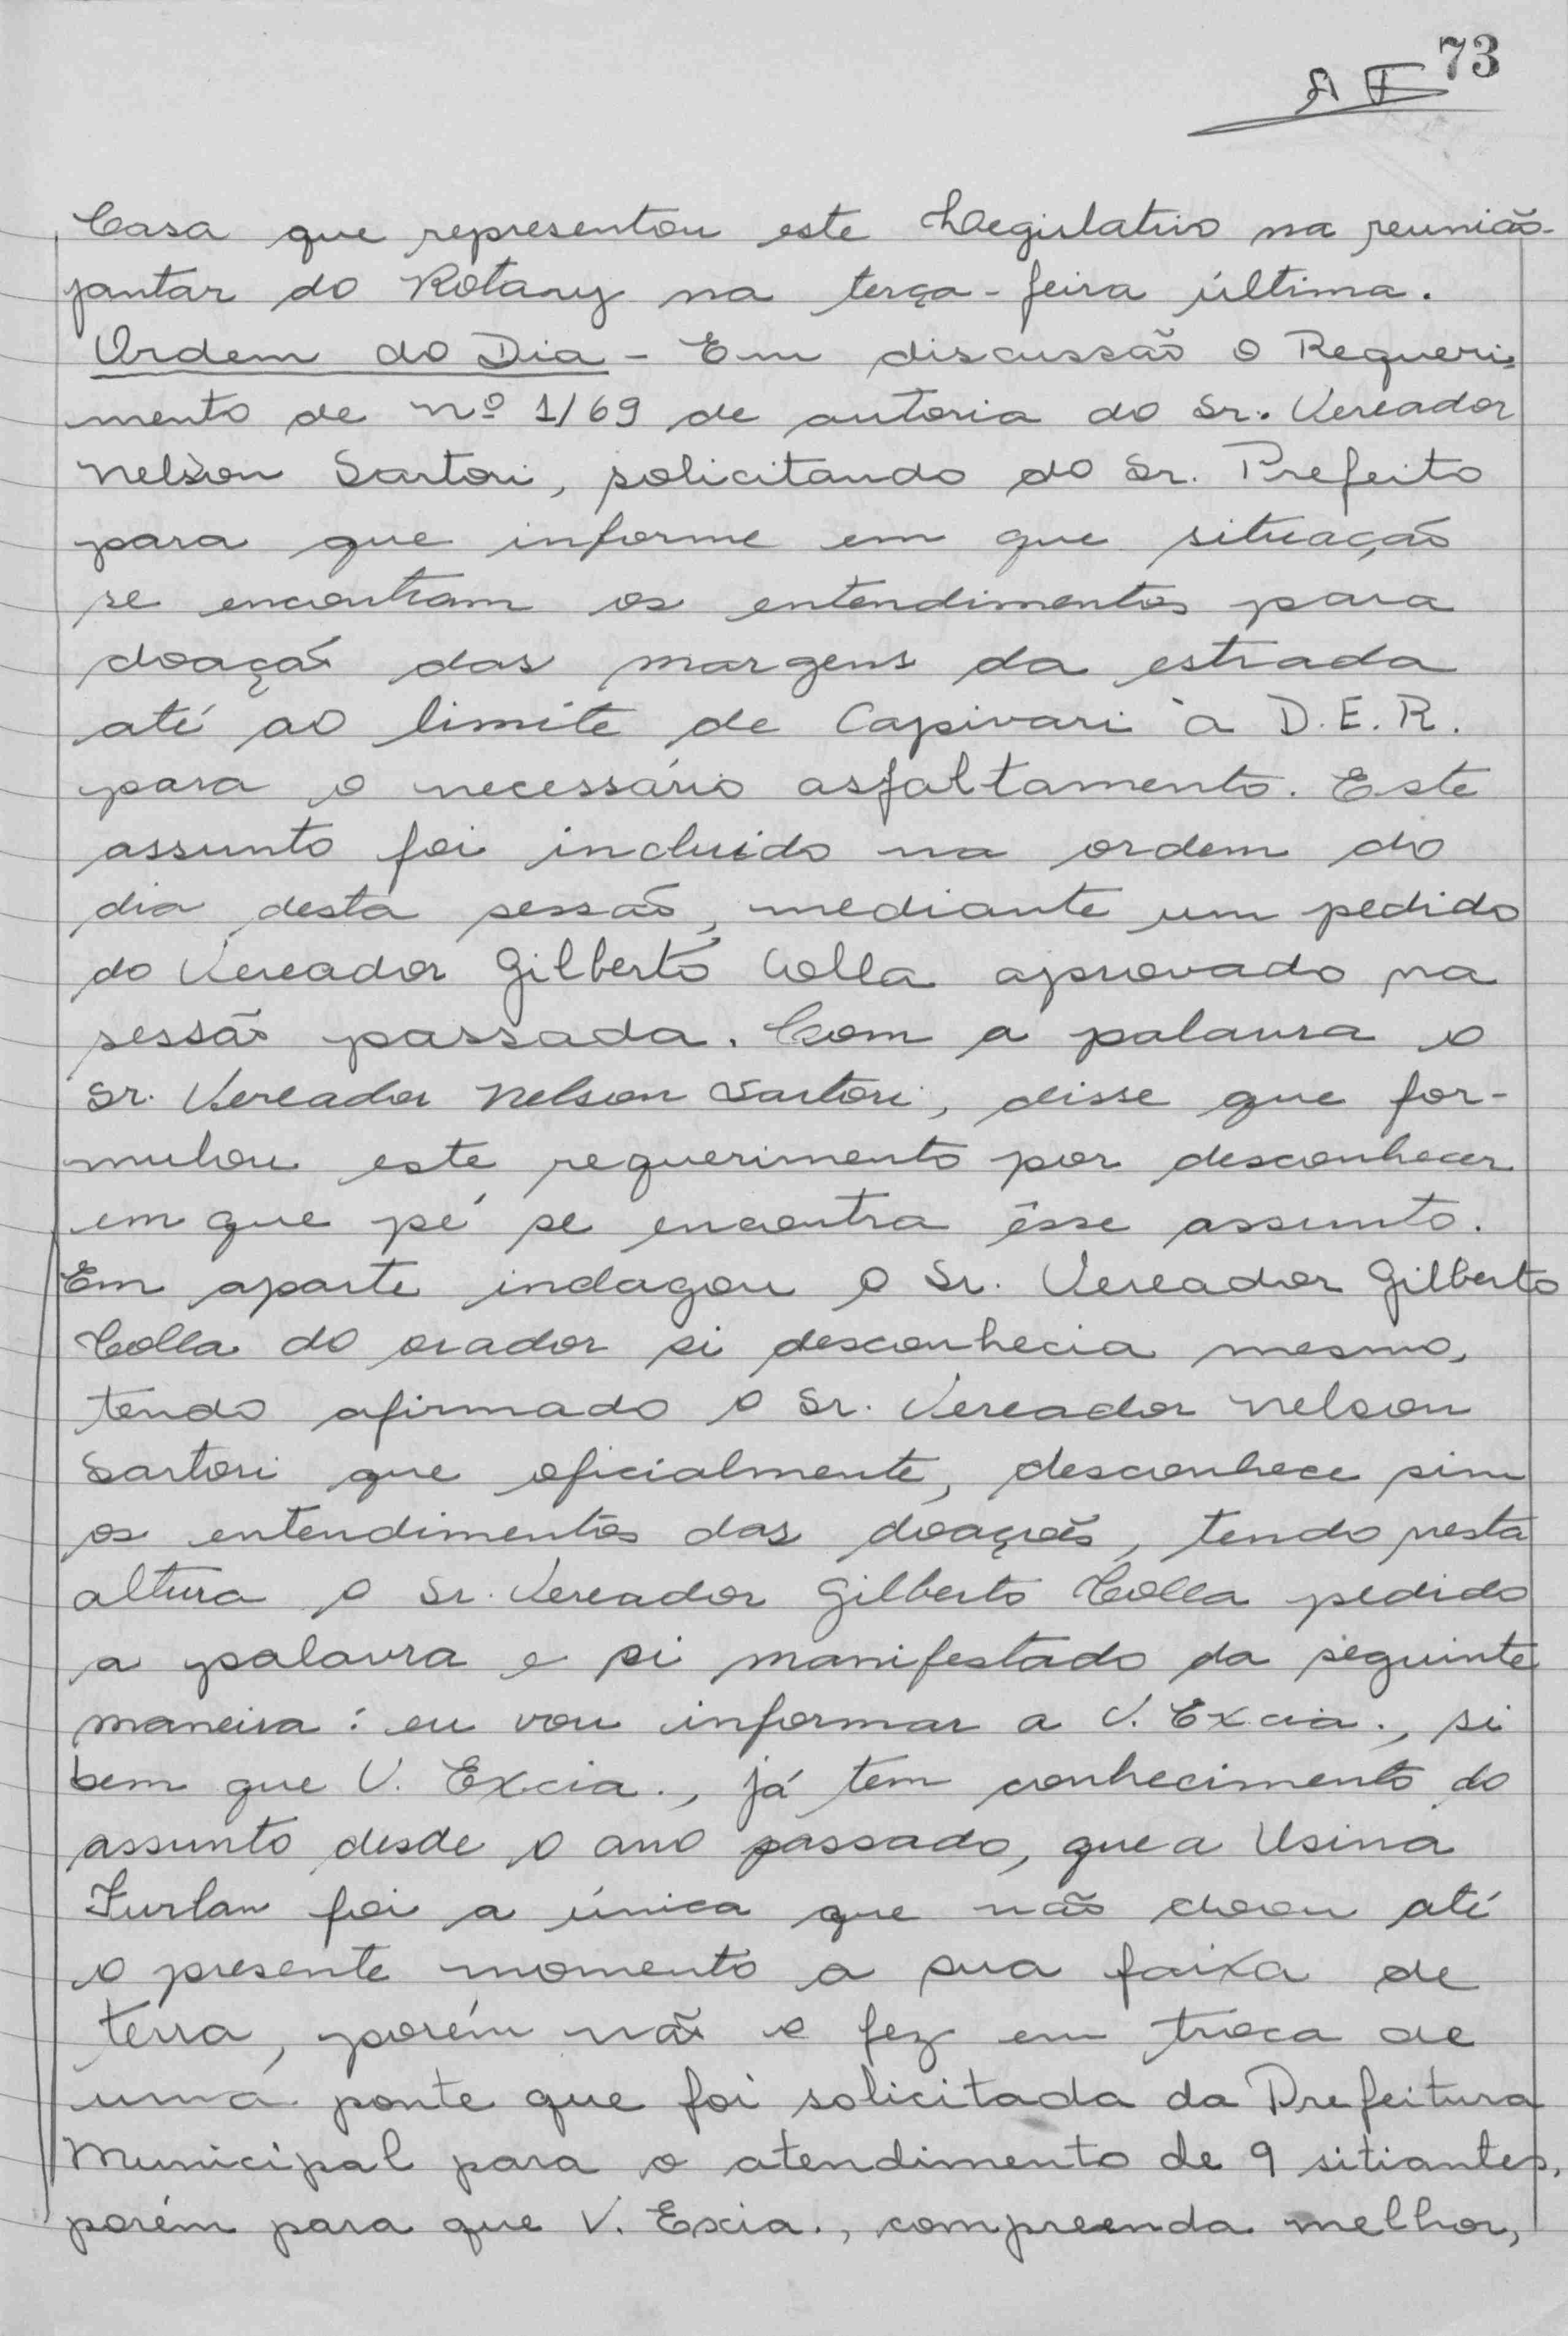 73
AF
Casa que representou este Legislativo na reunião-
jantar do Rotary na terça-feira última.
Ordem do Dia - Em discussão o Requeri=
mento de nº 1/69 de autoria do Sr. Vereador
Nelson Sartori, solicitando do Sr. Prefeito
para que informe em que situação
se encontram os entendimentos para
doação das margens da estrada
até ao limite de Capivari à D.E.R.
para o necessário asfaltamento. Este
assunto foi incluido na ordem do
dia desta sessão, mediante um pedido
do Vereador Gilberto Colla aprovado na
sessão passada. Com a palavra o
Sr. Vereador Nelson Sartori, disse que for-
mulou este requerimento por desconhecer
em que pé se encontra êsse assunto.
Em aparte indagou o Sr. Vereador Gilberto
Colla do orador si desconhecia mesmo,
tendo afirmado o Sr. Vereador Nelson
Sartori que oficialmente, desconhece sim
os entendimentos das doações, tendo nesta
altura o Sr. Vereador Gilberto Colla pedido
a palavra e si manifestado da seguinte
maneira: eu vou informar a V. Excia., si
bem que V. Excia., já tem conhecimento do
assunto desde o ano passado, que a Usina
Furlan foi a única que não doou até
o presente momento a sua faixa de
terra, porém não o fez em troca de
uma ponte que foi solicitada da Prefeitura
Municipal para o atendimento de 9 sitiantes,
porém para que V. Excia., compreenda melhor,